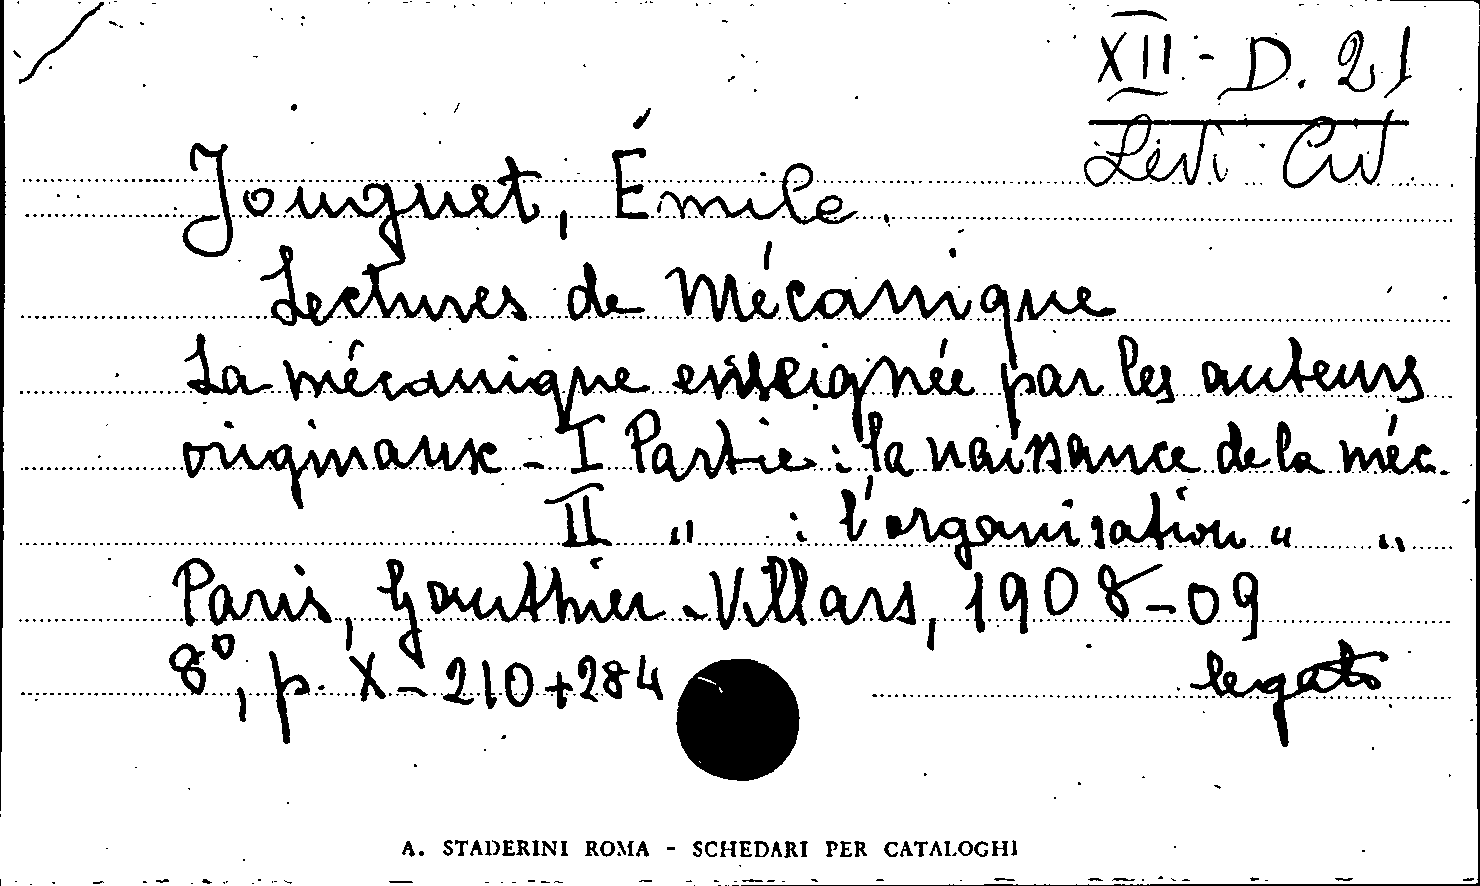 XII - D. 21
Levi Civ
Jouguet, Émile.
Lectures de Mécanique
La mécanique enseignée par les auteurs
originaux - I Partie : la naissance de la méc.
II " : l'organisation " "
Paris, Gauthier-Villars, 1908-09
8°, p. X-210+284
legato
A. STADERINI ROMA - SCHEDARI PER CATALOGHI